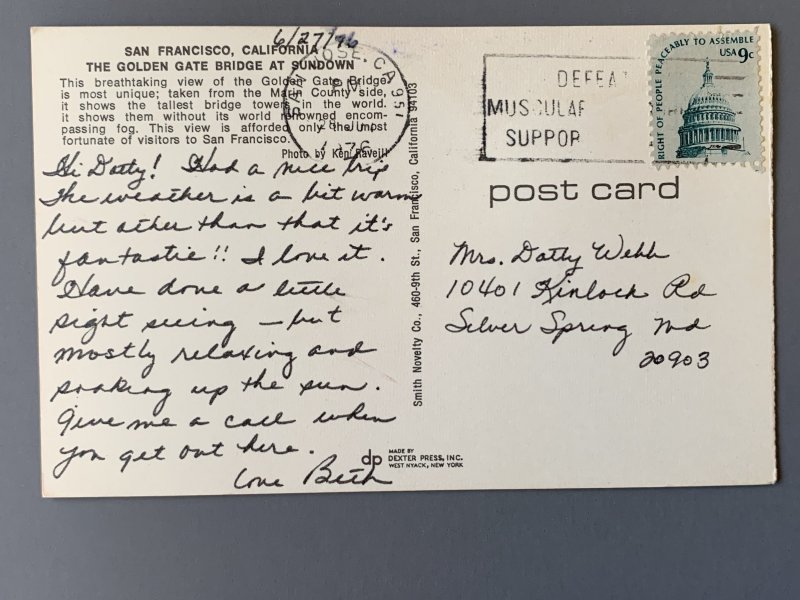 6/27/76
SAN FRANCISCO, CALIFORNIA
THE GOLDEN GATE BRIDGE AT SUNDOWN
This breathtaking view of the Golden Gate Bridge
is most unique; taken from the Marin County side,
it shows the tallest bridge towers in the world.
it shows them without its world renowned encom-
passing fog. This view is afforded only the most
fortunate of visitors to San Francisco.
Photo by Ken Raveill
Hi Dotty! Had a nice trip
The weather is a bit warm
but other than that it's
fantastic!! I love it.
Have done a little
sight seeing – but
mostly relaxing and
soaking up the sun.
Give me a call when
you get out here.
Love Beth
SAN JOSE, CA 951
PM
28 JUN
1976
DEFEAT
MUSCULAR
SUPPOR
RIGHT OF PEOPLE PEACEABLY TO ASSEMBLE
USA 9c
post card
Mrs. Dotty Webb
10401 Kinloch Rd
Silver Spring Md
20903
Smith Novelty Co., 460-9th St., San Francisco, California 94103
dp
MADE BY
DEXTER PRESS, INC.
WEST NYACK, NEW YORK